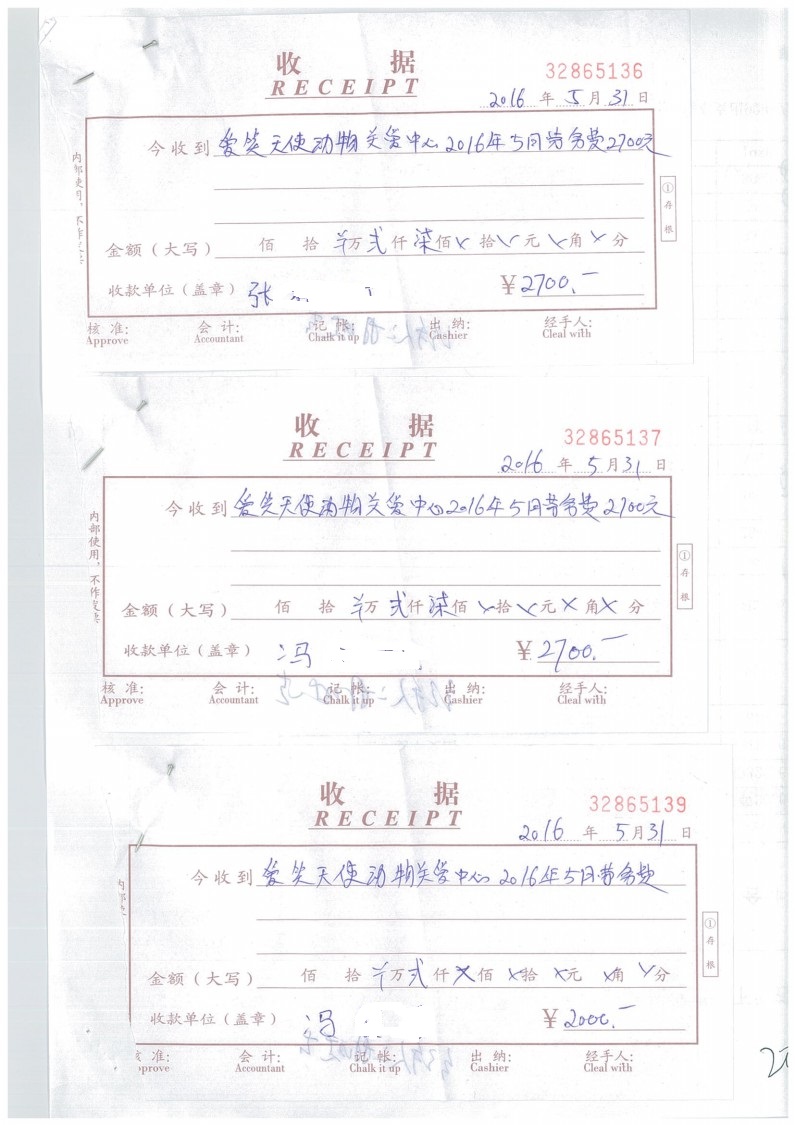 收 据
RECEIPT
32865136
2016 年 5 月 31 日
今收到 爱笑天使动物关爱中心 2016年5月劳务费2700元
内部使用,不作发票
①存根
金额(大写) 佰 拾 ¥万 贰 仟 柒 佰 × 拾 × 元 × 角 × 分
收款单位(盖章) 张
¥ 2700.—
核 准: 会 计: 记 帐: 出 纳: 经手人:
Approve Accountant Chalk it up Cashier Cleal with
收 据
RECEIPT
32865137
2016 年 5 月 31 日
今收到 爱笑天使动物关爱中心2016年5月劳务费2700元
内部使用,不作发票
①存根
金额(大写) 佰 拾 ¥万 贰 仟 柒 佰 × 拾 × 元 × 角 × 分
收款单位(盖章) 冯
¥ 2700.—
核 准: 会 计: 记 帐: 出 纳: 经手人:
Approve Accountant Chalk it up Cashier Cleal with
收 据
RECEIPT
32865139
2016 年 5 月 31 日
今收到 爱笑天使动物关爱中心 2016年5月劳务费
内部
①存根
金额(大写) 佰 拾 ¥万 贰 仟 × 佰 × 拾 × 元 × 角 × 分
收款单位(盖章) 冯
¥ 2000.—
准: 会 计: 记 帐: 出 纳: 经手人:
prove Accountant Chalk it up Cashier Cleal with